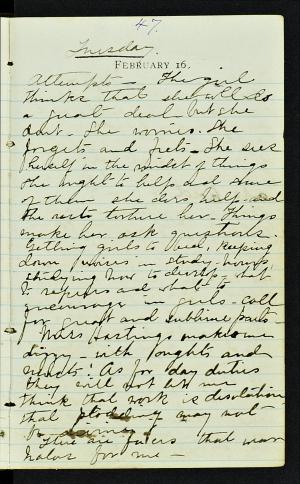 47.
Tuesday.
FEBRUARY 16.
Attempts The girl
thinks that she will do
a great deal but she
don't. She worries. She
forgets and frets. She sees
herself in the midst of things
she ought to help and some
of them she does help and
the rest torture her. Things
make her ask questions.
Getting girls to bed, keeping
down voices in study-hours,
studying how to develop, what
to repress and what to
encourage in girls. call
for great and sublime parts.
Miss Hastings makes me
dizzy with oughts and
musts! As for day duties
they will not let me
think that work is desolation
that plodding may not
be
There are faces that wear
halos for me —